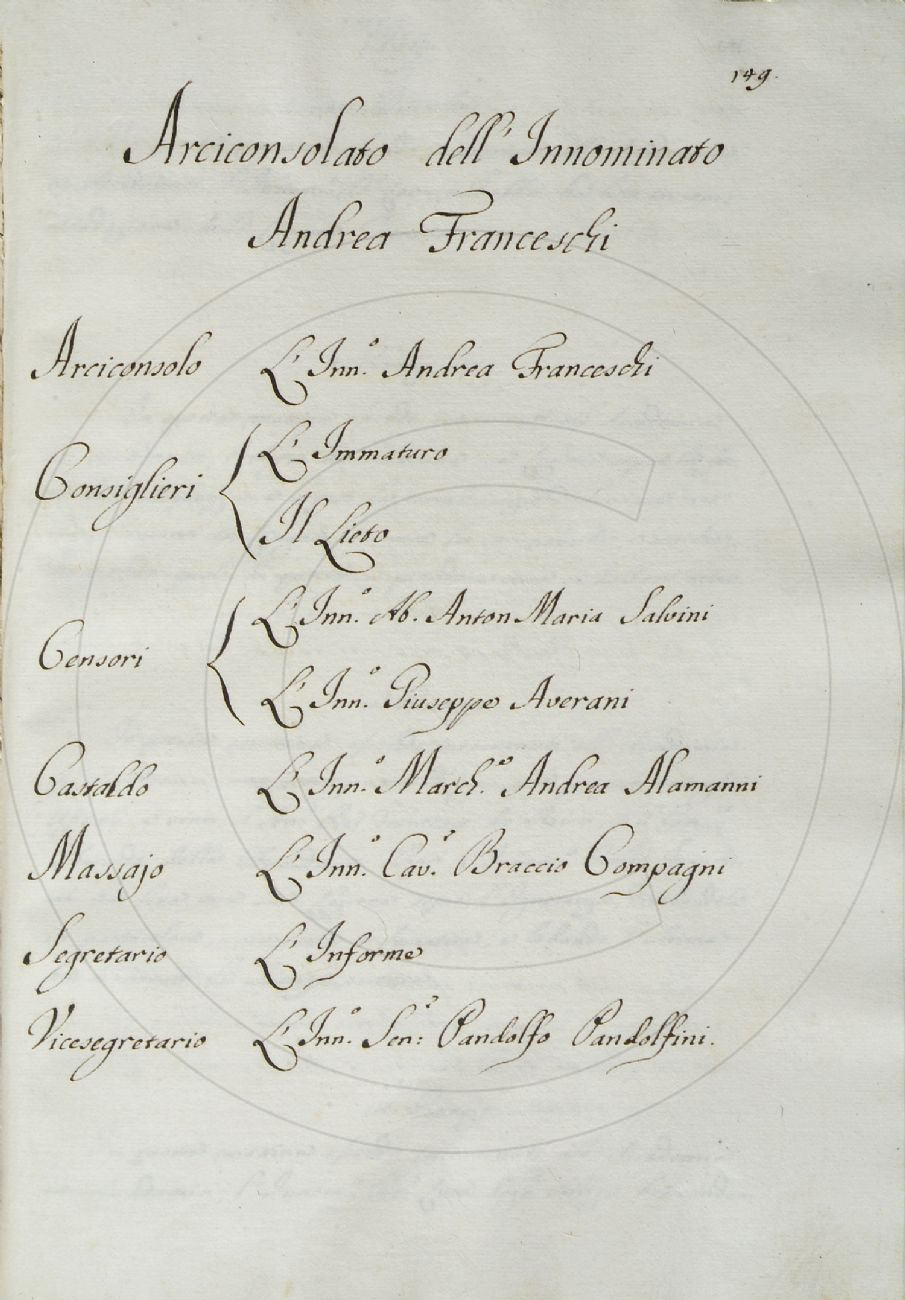 149.
Arciconsolato dell' Innominato
Andrea Franceschi
Arciconsolo L' Inn.º Andrea Franceschi
Consiglieri { L' Immaturo
Il Lieto
Censori { L' Inn.º Ab. Anton Maria Salvini
L' Inn.º Giuseppe Averani
Castaldo L' Inn.º March.º Andrea Alamanni
Massajo L' Inn.º Cav.º Braccio Compagni
Segretario L' Informe
Vicesegretario L' Inn.º Sen:º Pandolfo Pandolfini.